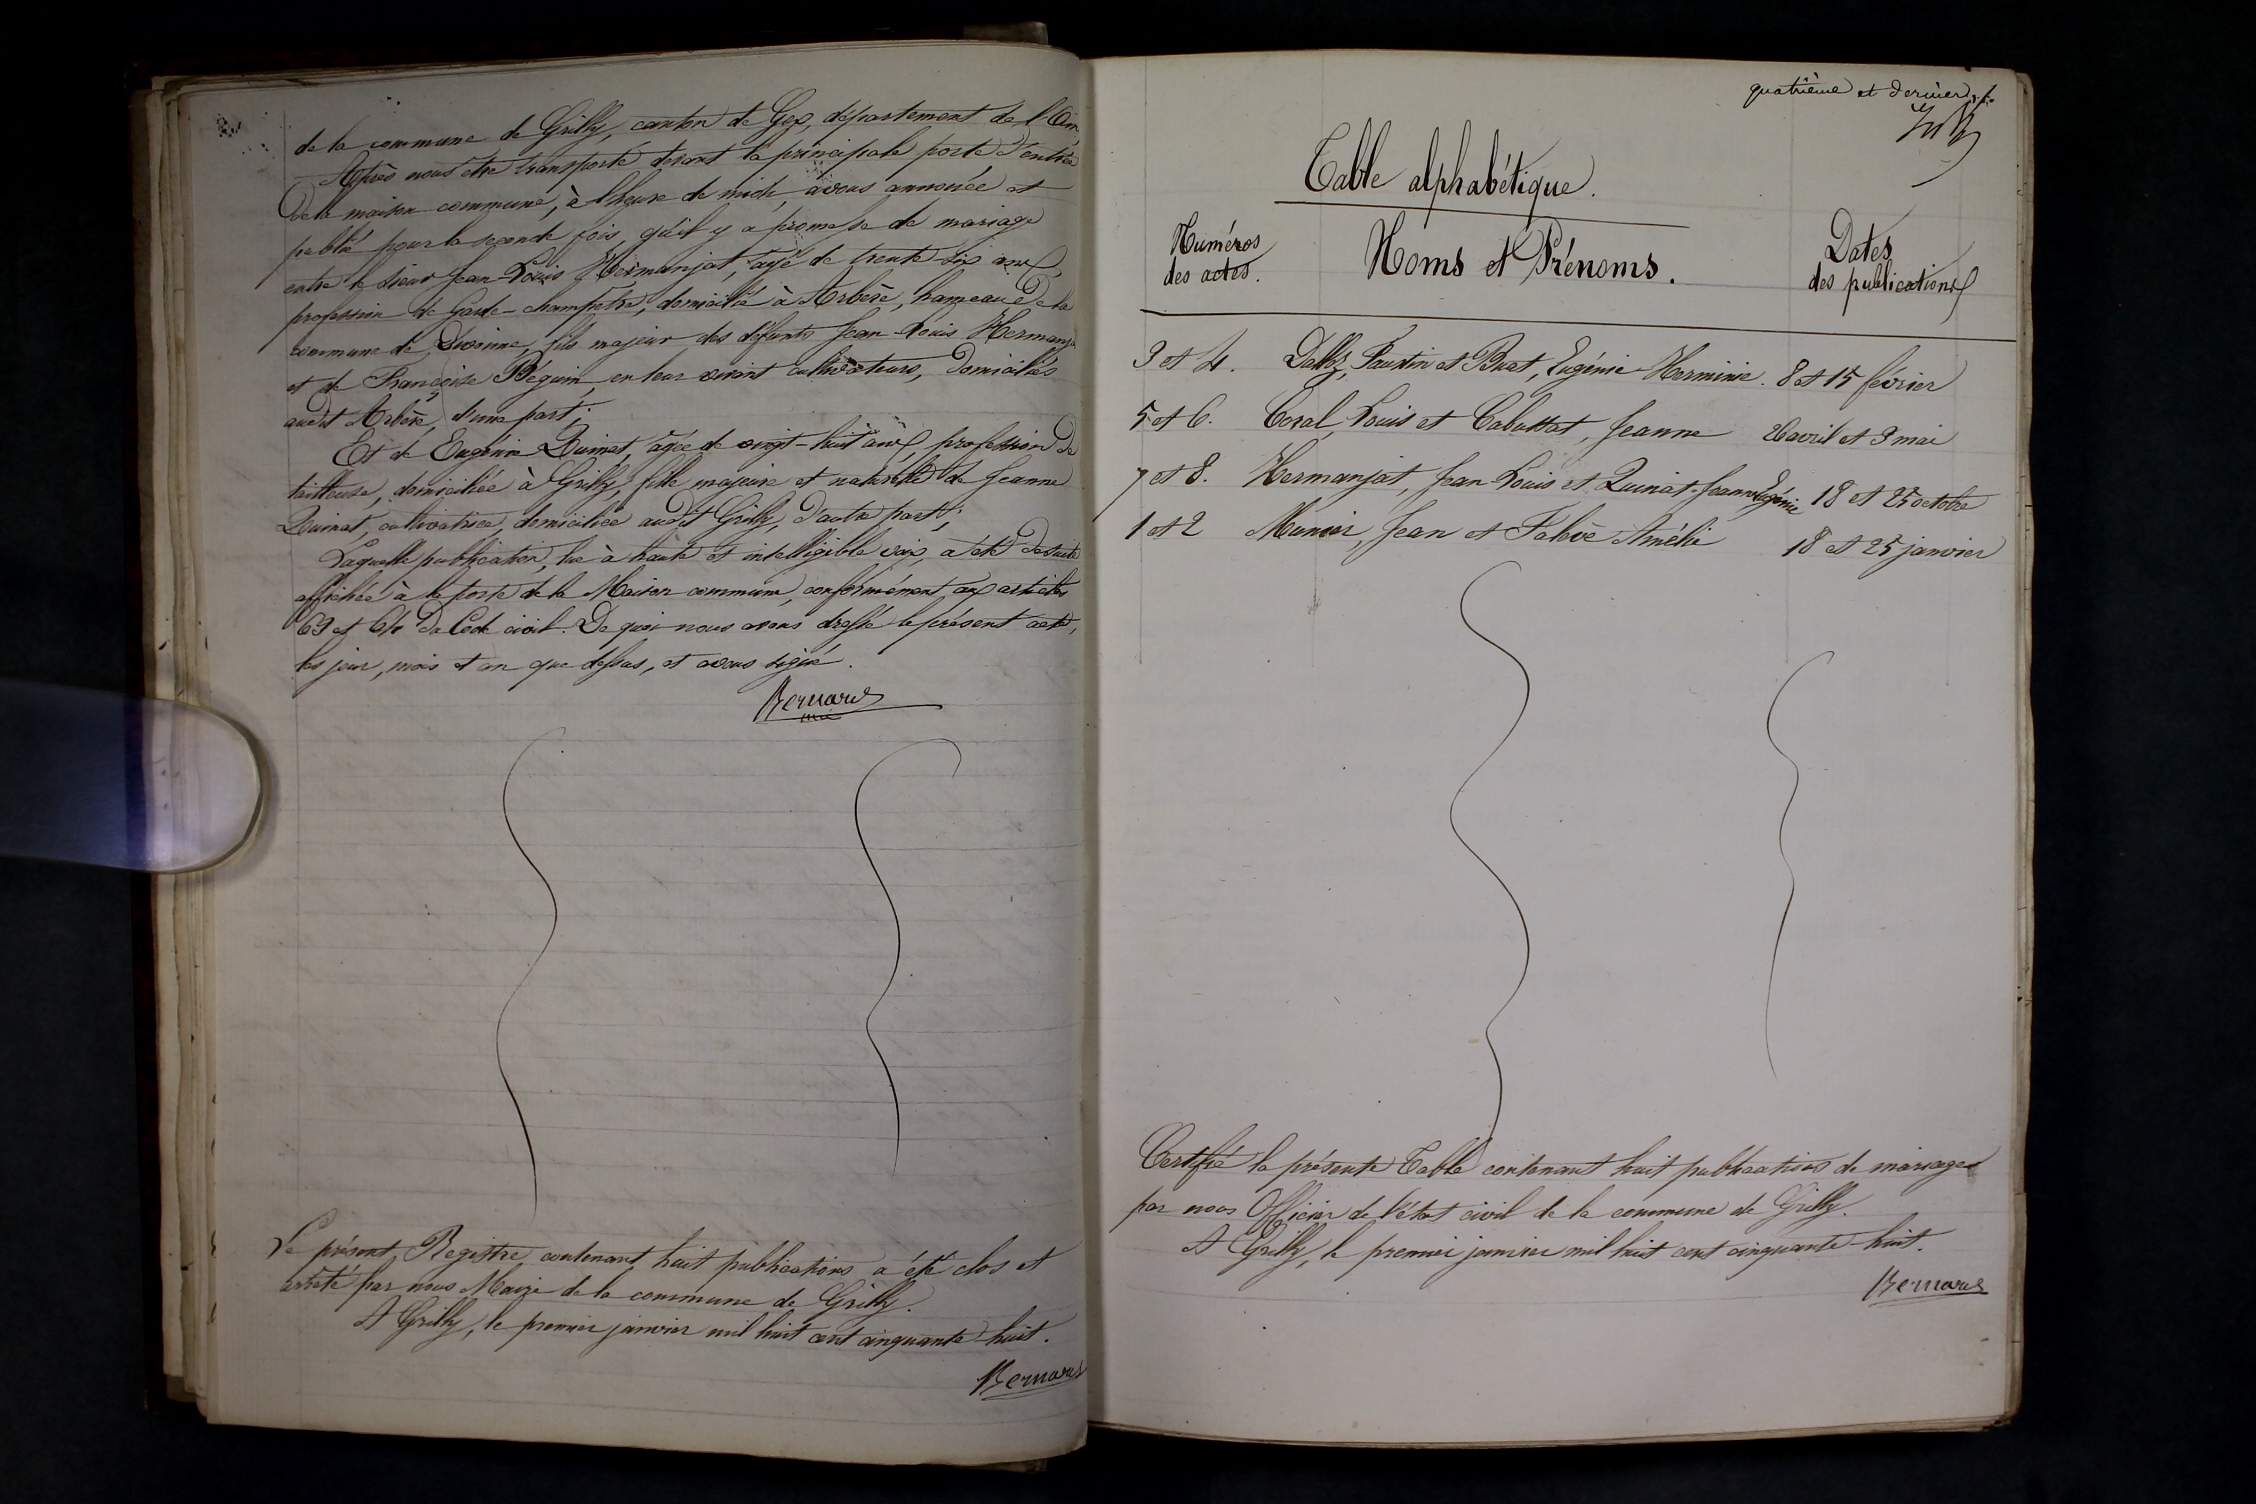 de la commune de Grilly, canton de Gex, département de l'Ain.
Après nous être transporté devant la principale porte d'entrée
de la maison commune, à l'heure de midi, avons annoncé et
publié pour la seconde fois, qu'il y a promesse de mariage
entre le sieur Jean Louis Hermanjat, âgé de trente-six ans,
profession de Garde-champêtre, domicilié à Arbère, hameau de la
commune de Divonne, fils majeur des défunts Jean Louis Hermanjat
et de Françoise Béguin, en leur vivant cultivateurs, domiciliés
audit Arbère, d'une part;
Et de Eugénie Quinat, âgée de vingt-huit ans, profession de
tailleuse, domiciliée à Grilly, fille majeure et naturelle de Jeanne
Quinat, cultivatrice, domiciliée audit Grilly, d'autre part;
Laquelle publication, lue à haute et intelligible voix, a été de suite
affichée à la porte de la Maison commune, conformément aux articles
63 et 64 du Code civil. De quoi nous avons dressé le présent acte,
les jour, mois et an que dessus, et avons signé.
Bernard
Le présent Registre contenant huit publications a été clos et
arrêté par nous Maire de la commune de Grilly.
A Grilly, le premier janvier mil huit cent cinquante-huit.
Bernard
quatrième et dernier f.
Table alphabétique.
Numéros des actes.
Noms et Prénoms.
Dates des publications
3 et 4. Dallz, Faustin et Buat, Eugénie Herminie. 8 et 15 février
5 et 6. Coral, Louis et Cabattat, Jeanne 26 avril et 3 mai
7 et 8. Hermanjat, Jean Louis et Quinat Jeanne Eugénie 18 et 25 octobre
1 et 2 Munier, Jean et Falève Amélie 18 et 25 janvier
Certifié la présente Table contenant huit publications de mariages
par nous Officier de l'état civil de la commune de Grilly.
A Grilly, le premier janvier mil huit cent cinquante-huit.
Bernard